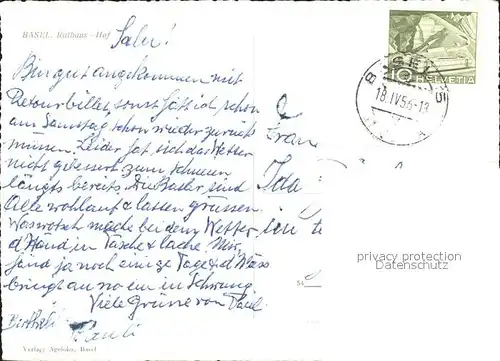 BASEL. Rathaus-Hof
Salü!
Bin gut angekommen mit
Retourbillet, sonst hätt ich schon
am Samstag schon wieder zurück
müssen. Leider hat sich das Wetter
nicht gebessert, zum schneien
längts bereits. Die Basler sind
Alle wohlauf & lassen grüssen.
Waswotsch mache bei dem Wetter
d'Händ in Täsche & lache. Mir
sind ja noch einige Tage & d'Mäss
bringt au no ein in Schwung.
Viele Grüsse von Paul
Bertheli
Pauli
Verlag Ageloka, Basel
Frau
Ida
HELVETIA
10
18.IV.56-13
privacy protection
Datenschutz